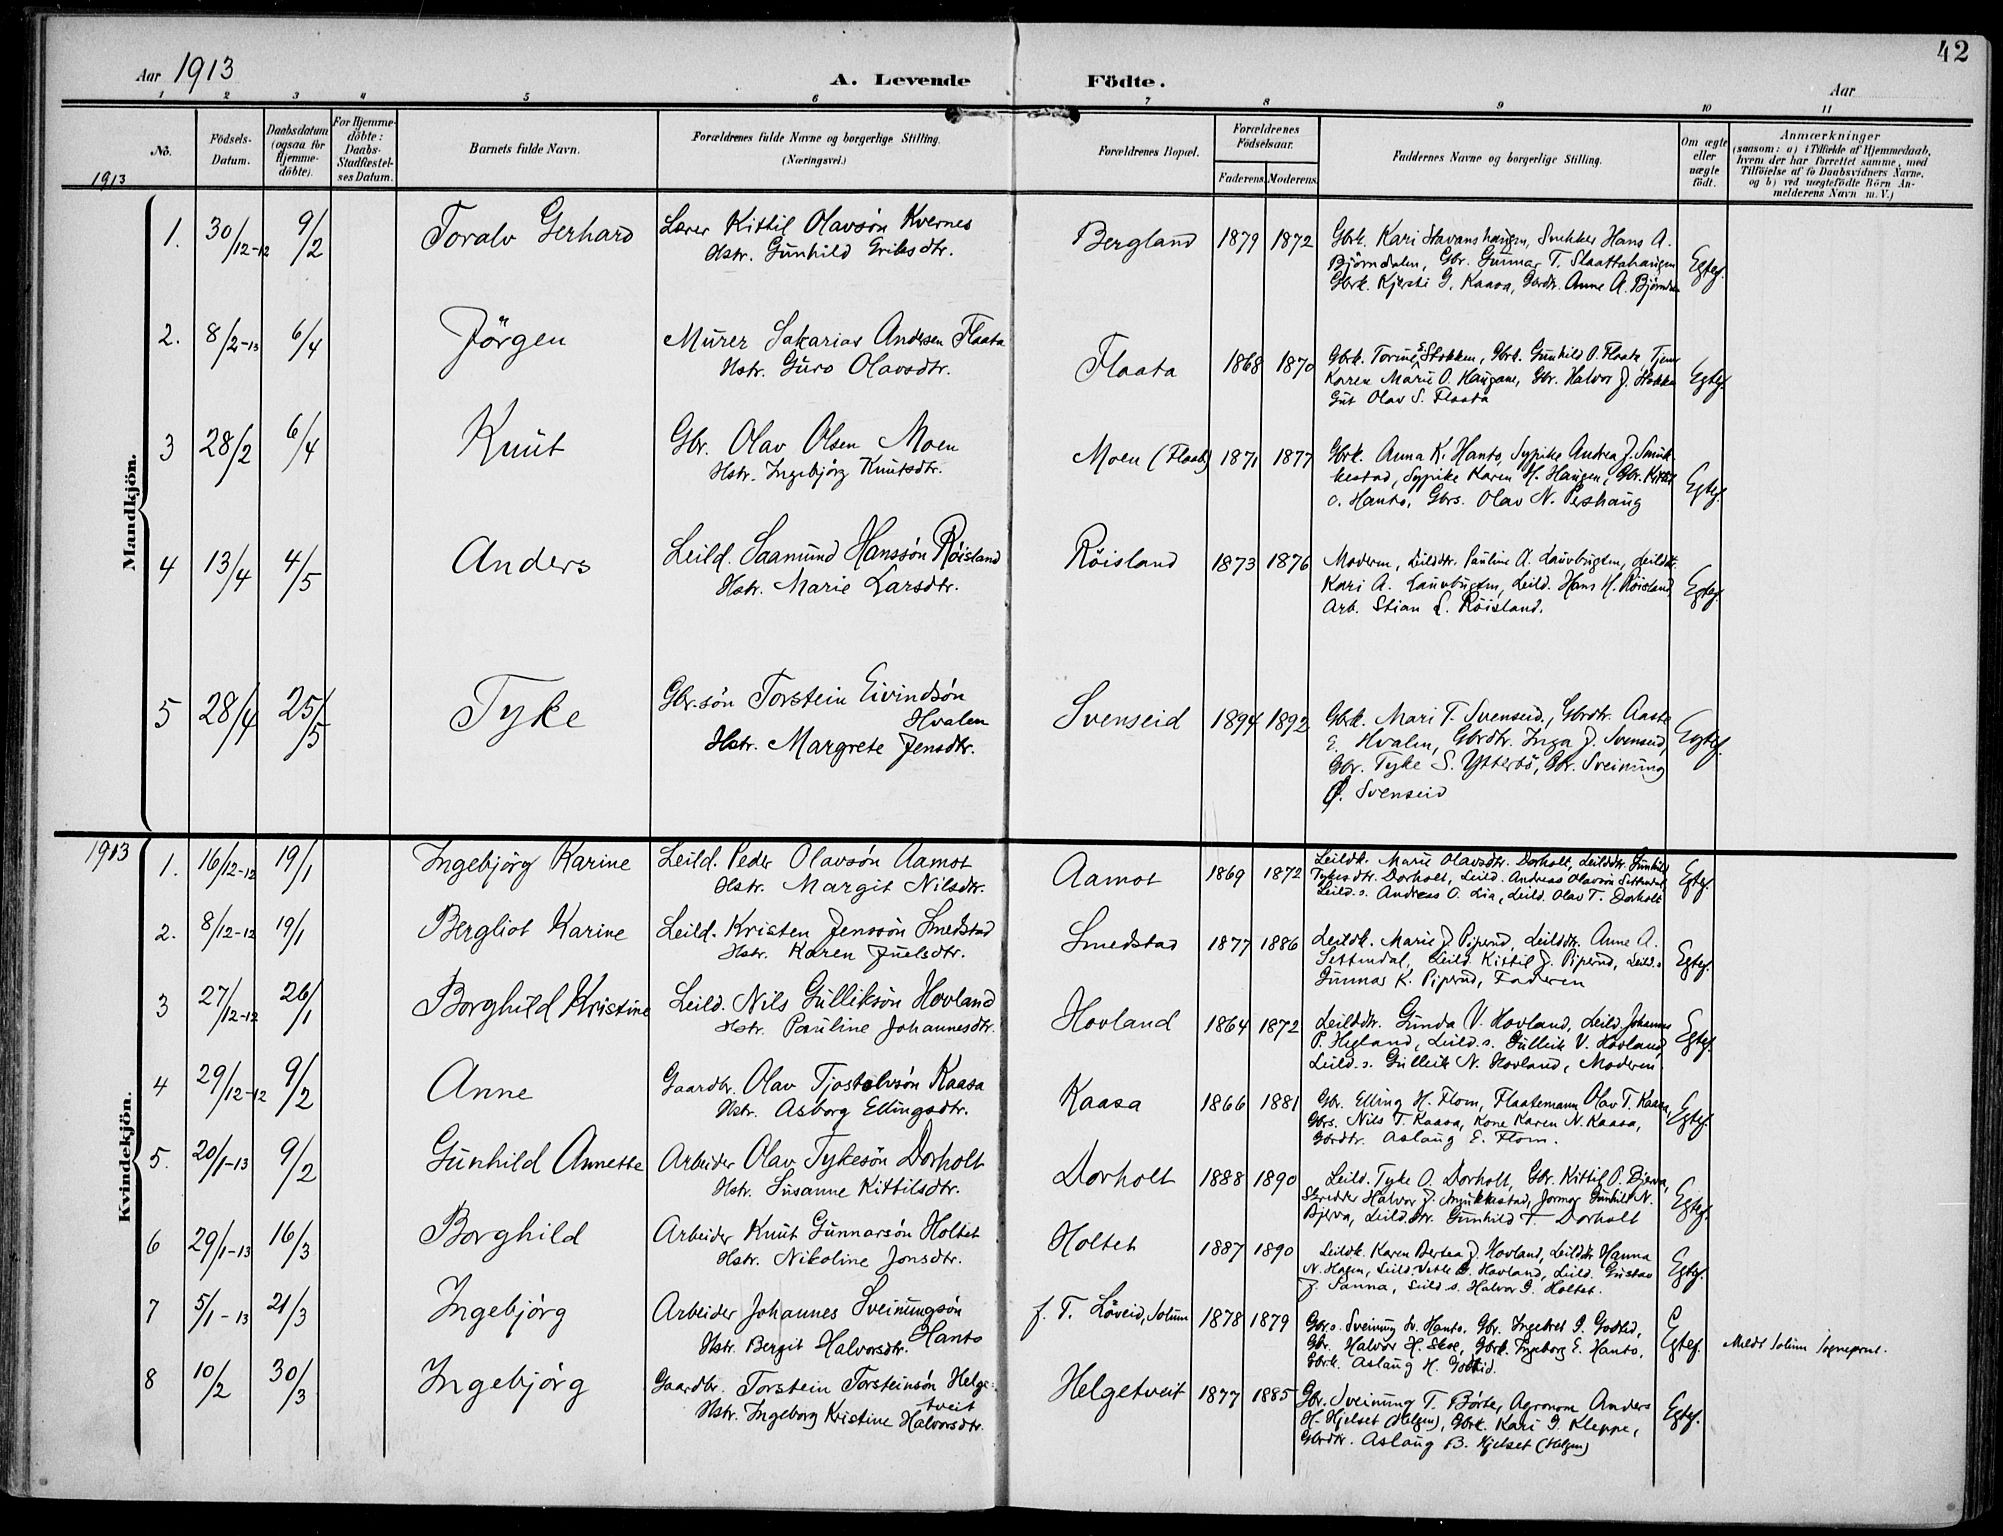 42
Aar 1913
A. Levende Födte.
Aar
1 2 3 4 5 6 7 8 9 10 11
No.
Födsels-Datum.
Daabsdatum (ogsaa for Hjemme-döbte).
For Hjemme-döbte: Daabs-Stadfæstel-ses Datum.
Barnets fulde Navn.
Forældrenes fulde Navne og borgerlige Stilling. (Næringsvei.)
Forældrenes Bopæl.
Forældrenes Födselsaar.
Faderens. Moderens.
Faddernes Navne og borgerlige Stilling.
Om ægte eller uægte födt.
Anmærkninger
(saasom: a) i Tilfælde af Hjemmedaab, hvem der har forrettet samme, med Tilföielse af to Daabsvidners Navne, og b) ved uægtefödte Börn An-melderens Navn m. V.)
1913
Mandkjön.
1. 30/12-12 9/2 Toralv Gerhard Lærer Kittil Olavsön Kvernes Bergland 1879 1872 Gbrk. Kari Stavanshaugen, Snekker Hans A. Egtef.
Hstr. Gunhild Eriksdtr. Björndalen, Gbr. Gunnar T. Slaattahaugen
Gbrk. Kjersti G. Kaasa, Gbrdtr. Anne A. Björndalen
2. 8/2-13 6/4 Jörgen Murer Sakarias Andersen Flaata Flaata 1868 1870 Gbrk. Torine E. Stokken, Gbrk. Gunhild O. Flaata Tjener Egtef.
Hstr. Guro Olavsdtr. Karen Marie O. Haugane, Gbr. Halvor J. Stokken
Gut Olav S. Flaata
3 28/2 6/4 Knut Gbr. Olav Olsen Moen Moen (Flaab) 1871 1877 Gbrk. Anna K. Hanto, Sypike Andrea J. Smuk- Egtef.
Hstr. Ingebjörg Knutsdtr. kestad, Sypike Karen H. Haugen, Gbr. Kittil
O. Hanto, Gbrs. Olav N. Pershaug
4 13/4 4/5 Anders Leild. Saamund Hanssön Röisland Röisland 1873 1876 Moderen, Leilddtr. Pauline A. Lauvbugten, Leildk. Egtef.
Hstr. Marie Larsdtr. Kari A. Lauvbugten, Leild. Hans H. Röisland,
Arb. Stian L. Röisland.
5 28/4 25/5 Tyke Gbr.sön Torstein Eivindsön Hvalen Svenseid 1894 1892 Gbrk. Mari T. Svenseid, Gbrdtr. Aaste Egtef.
Hstr. Margrete Jensdtr. E. Hvalen, Gbrdtr. Inga J. Svenseid,
Gbr. Tyke S. Ytterbö, Gbr. Sveinung
Svenseid
1913
Kvindekjön.
1. 16/12-12 19/1 Ingebjörg Karine Leild. Peder Olavsön Aamot Aamot 1869 1872 Leildk. Marie Olavsdtr. Dorholt, Leilddtr. Gunhild Egtef.
Hstr. Margit Nilsdtr. Tykesdtr. Dorholt, Leild. Andreas Olavsön Settendal,
Leild.s. Andreas O. Lia, Leild. Olav T. Dorholt
2. 8/12-12 19/1 Bergliot Karine Leild. Kristen Jenssön Smedstad Smedstad 1877 1886 Leildk. Marie J. Piperud, Leilddtr. Anne A. Egtef.
Hstr. Karen Juelsdtr. Settendal, Leild. Kittil J. Piperud, Leild.s
Gunnar K. Piperud, Faderen
3 27/12-12 26/1 Borghild Kristine Leild. Nils Gulliksön Hovland Hovland 1864 1872 Leilddtr. Gunda V. Hovland, Leild. Johannes Egtef.
Hstr. Pauline Johannesdtr. P. Hegland, Leild.s. Gulleik V. Hovland,
Leild.s. Gulleik N. Hovland, Moderen
4 29/12-12 9/2 Anne Gaardbr. Olav Tjostolvsön Kaasa Kaasa 1866 1881 Gbr. Elling H. Flom, Flaatemann Olav T. Kaasa, Egtef.
Hstr. Asborg Ellingsdtr. Gbrs. Nils T. Kaasa, Kone Karen N. Kaasa,
Gbrdtr. Aslaug E. Flom.
5. 20/1-13 9/2 Gunhild Annette Arbeider Olav Tykesön Dorholt Dorholt 1888 1890 Leild. Tyke O. Dorholt, Gbr. Kittil P. Bjerva, Egtef.
Hstr. Susanne Kittilsdtr. Skredder Halvor J. Smukkestad, Jormor Gunhild N.
Bjerva, Leilddtr. Gunhild T. Dorholt
6 29/1-13 16/3 Borghild Arbeider Knut Gunnarsön Holtet Holtet 1887 1890 Leildk. Karen Bertea J. Hovland, Leilddtr Hanna Egtef.
Hstr. Nikoline Jonsdtr. N. Hagen, Leild Vetle G. Hovland, Leild. Gustav
J. Sanna, Leild s. Halvor G. Holtet.
7 5/1-13 21/3 Ingebjörg Arbeider Johannes Sveinungsön Hanto f. T. Löveid, Solum 1878 1879 Gbr.s. Sveinung Hanto, Gbr. Ingebret G. Godtid, Egtef. Meldt Solum Sogneprest.
Hstr. Bergit Halvorsdtr. Gbr. Halvor H. Skoe, Gbrk. Ingeborg E. Hanto,
Gbrk. Aslaug H. Godtid.
8 10/2 30/3 Ingebjörg Gaardbr. Torstein Torsteinsön Helge- Helgetveit 1877 1885 Gbr. Sveinung T. Börte, Agronom Anders Egtef.
tveit H. Hjelset (Helgen), Gbrk. Kari G. Kleppe,
Hstr. Ingeborg Kristine Halvorsdtr. Gbrdtr. Aslaug B. Hjelset (Helgen)